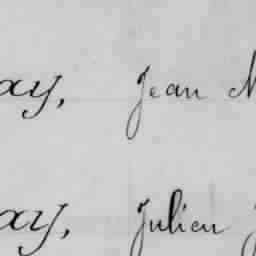 ay, Jean M
ay, Julien J